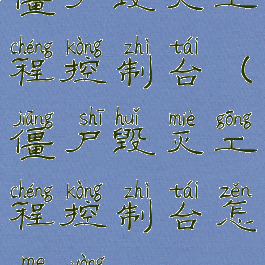 chéng kòng zhì tái
程控制台(
jiāng shī huǐ miè gōng
僵尸毁灭工
chéng kòng zhì tái zěn
程控制台怎
me yòng